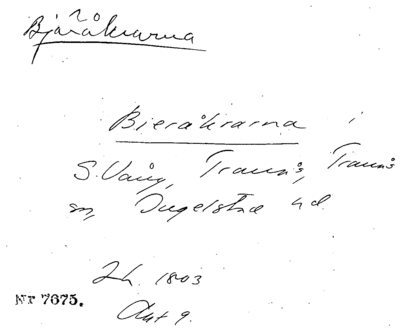 Bjäråkrarna
Bieråkrarna i
S. Vång, Tranås, Tranås
sn, Ingelstad hd.
Sh. 1803
Akt 9.
Nr 7675.